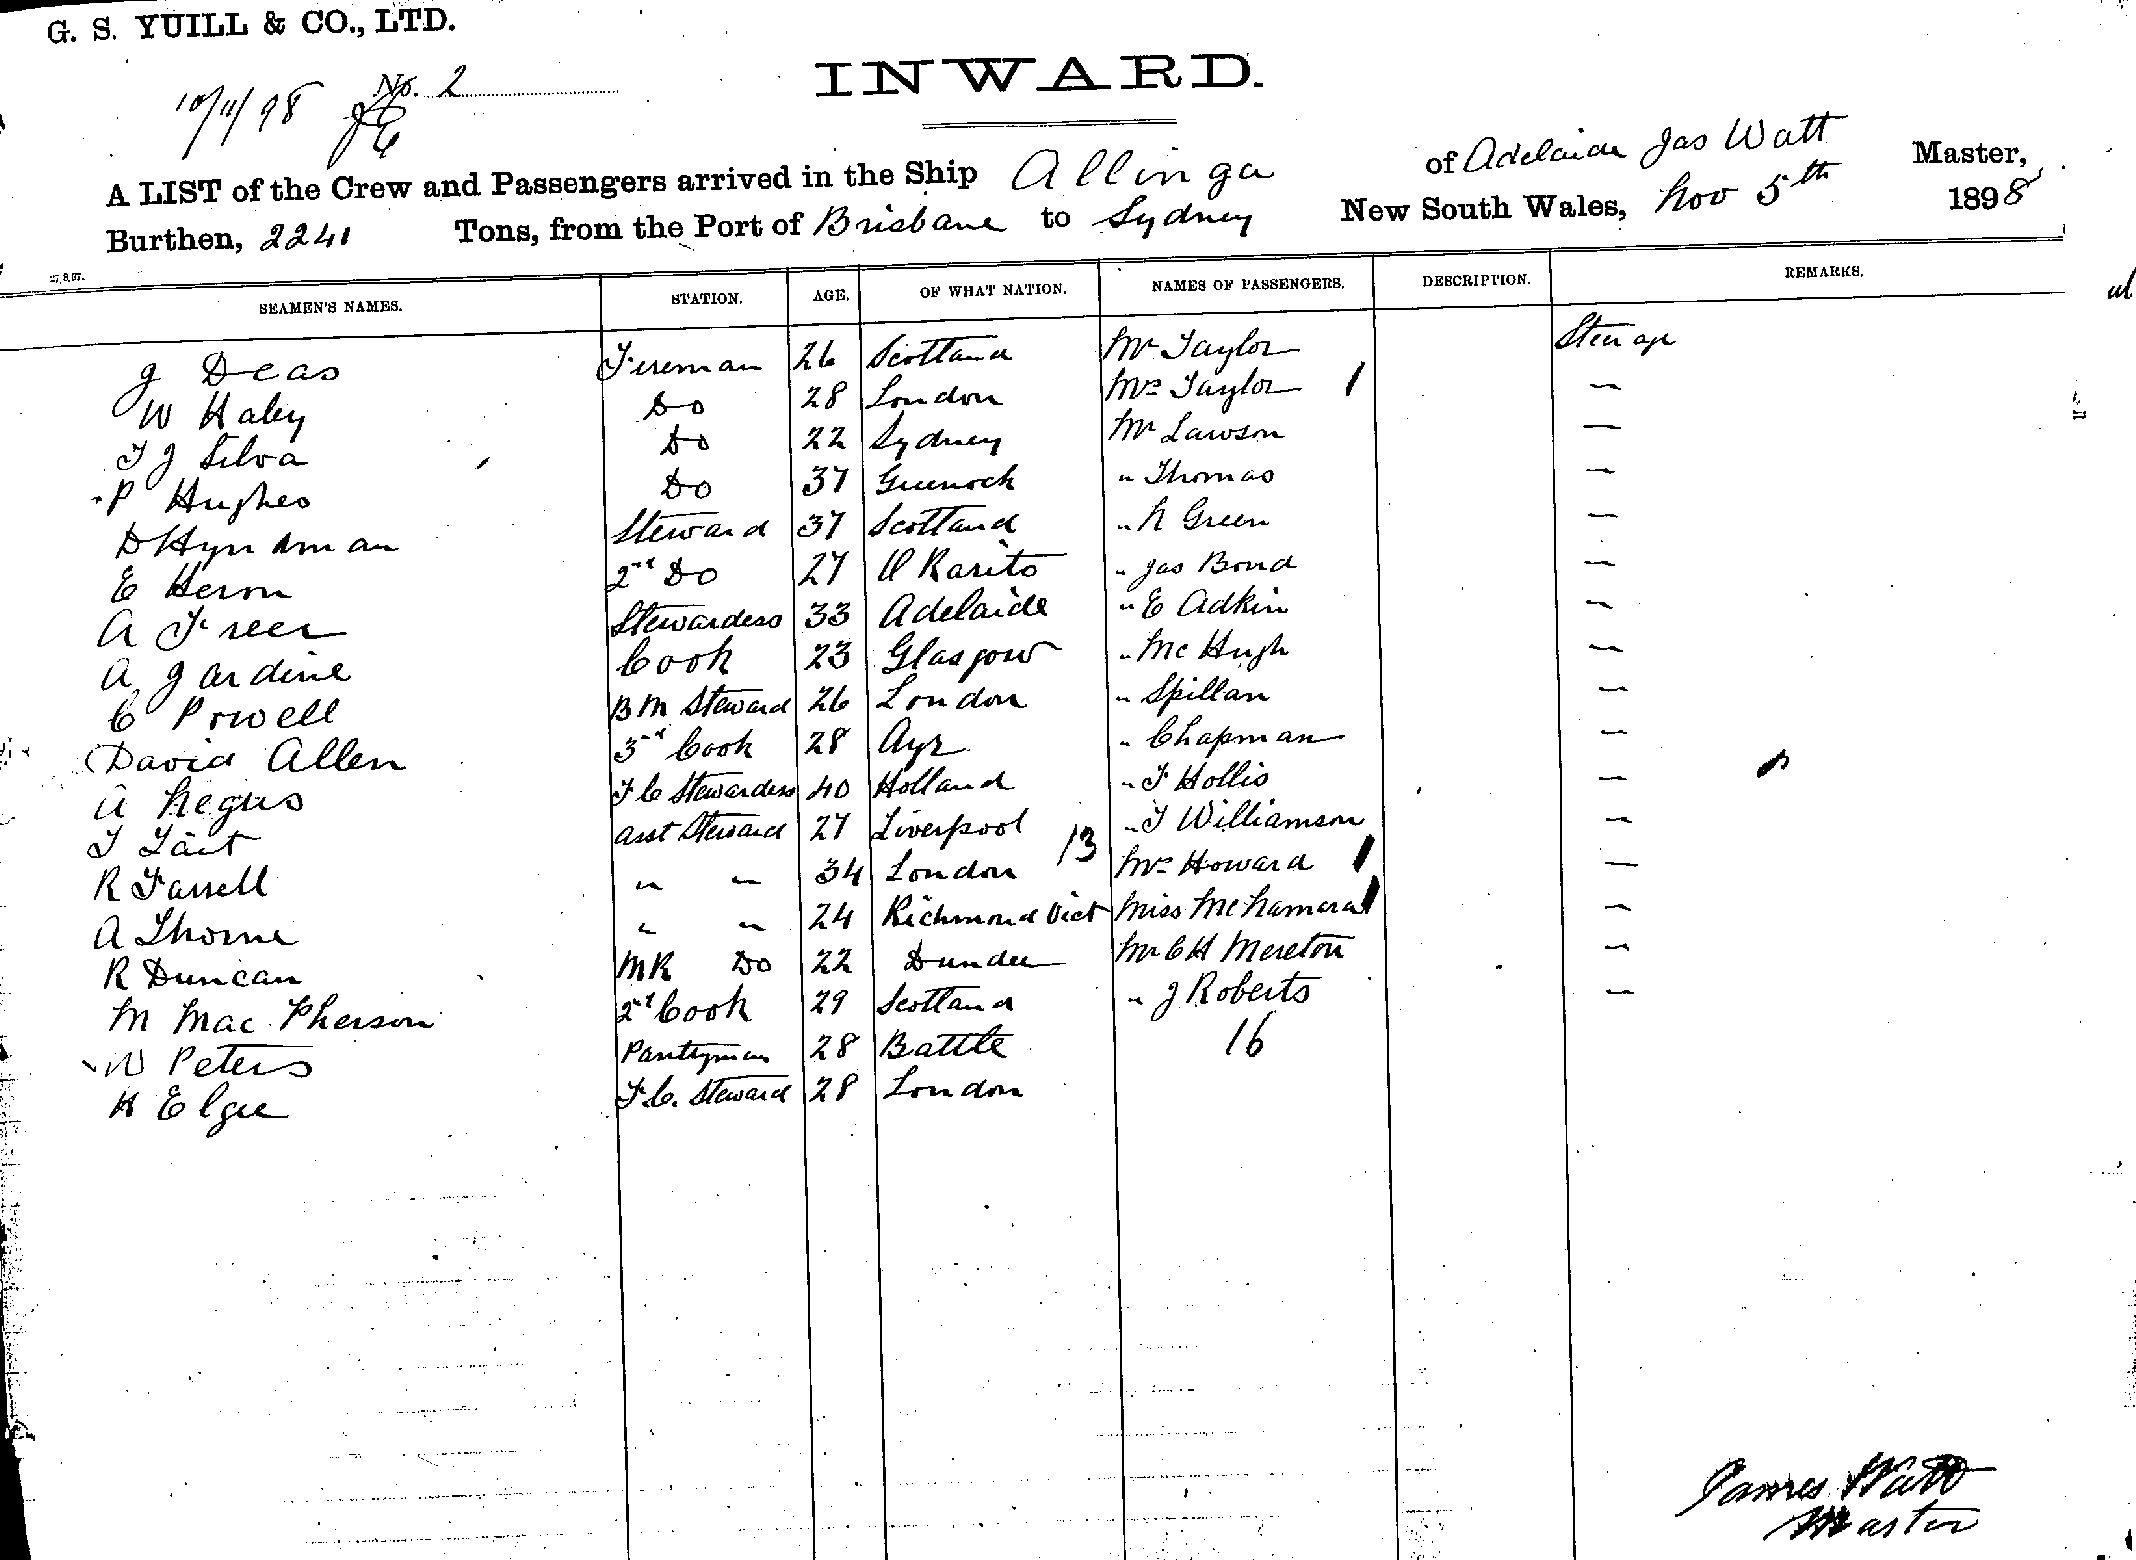 G. S. YUILL & CO., LTD.
10/11/98 No. 2
INWARD.
A LIST of the Crew and Passengers arrived in the Ship Allinga of Adelaide Jas Watt Master,
Burthen, 2241 Tons, from the Port of Brisbane to Sydney New South Wales, Nov 5th 1898
SEAMEN'S NAMES. STATION. AGE. OF WHAT NATION. NAMES OF PASSENGERS. DESCRIPTION. REMARKS.
J Deas Fireman 26 Scotland Mr Taylor Steerage
W Haley Do 28 London Mrs Taylor 1 —
T J Silva Do 22 Sydney Mr Lawson —
P Hughes Do 37 Greenock " Thomas —
D Hyndman Steward 37 Scotland " N Green —
E Heron 2nd Do 27 " Jas Bond —
A Freer Stewardess 33 Adelaide " E Adkin —
A Jardine Cook 23 Glasgow " Mc Hugh —
C Powell B M Steward 26 London " Spillan —
David Allen 3rd Cook 28 Ayr " Chapman —
A Negus F C Stewardess 40 Holland " F Hollis —
T Tait asst Steward 27 Liverpool 13 " T Williamson —
R Farrell " " 34 London Mrs Howard 1 —
A Thorne " " 24 Richmond Vict Miss McNamara 1 —
R Duncan MR Do 22 Dundee Mr C H Mereton —
M Mac Pherson 2nd Cook 29 Scotland " J Roberts —
W Peters Pantryman 28 Battle 16
H Elgie F.C. Steward 28 London
James Watt
Master